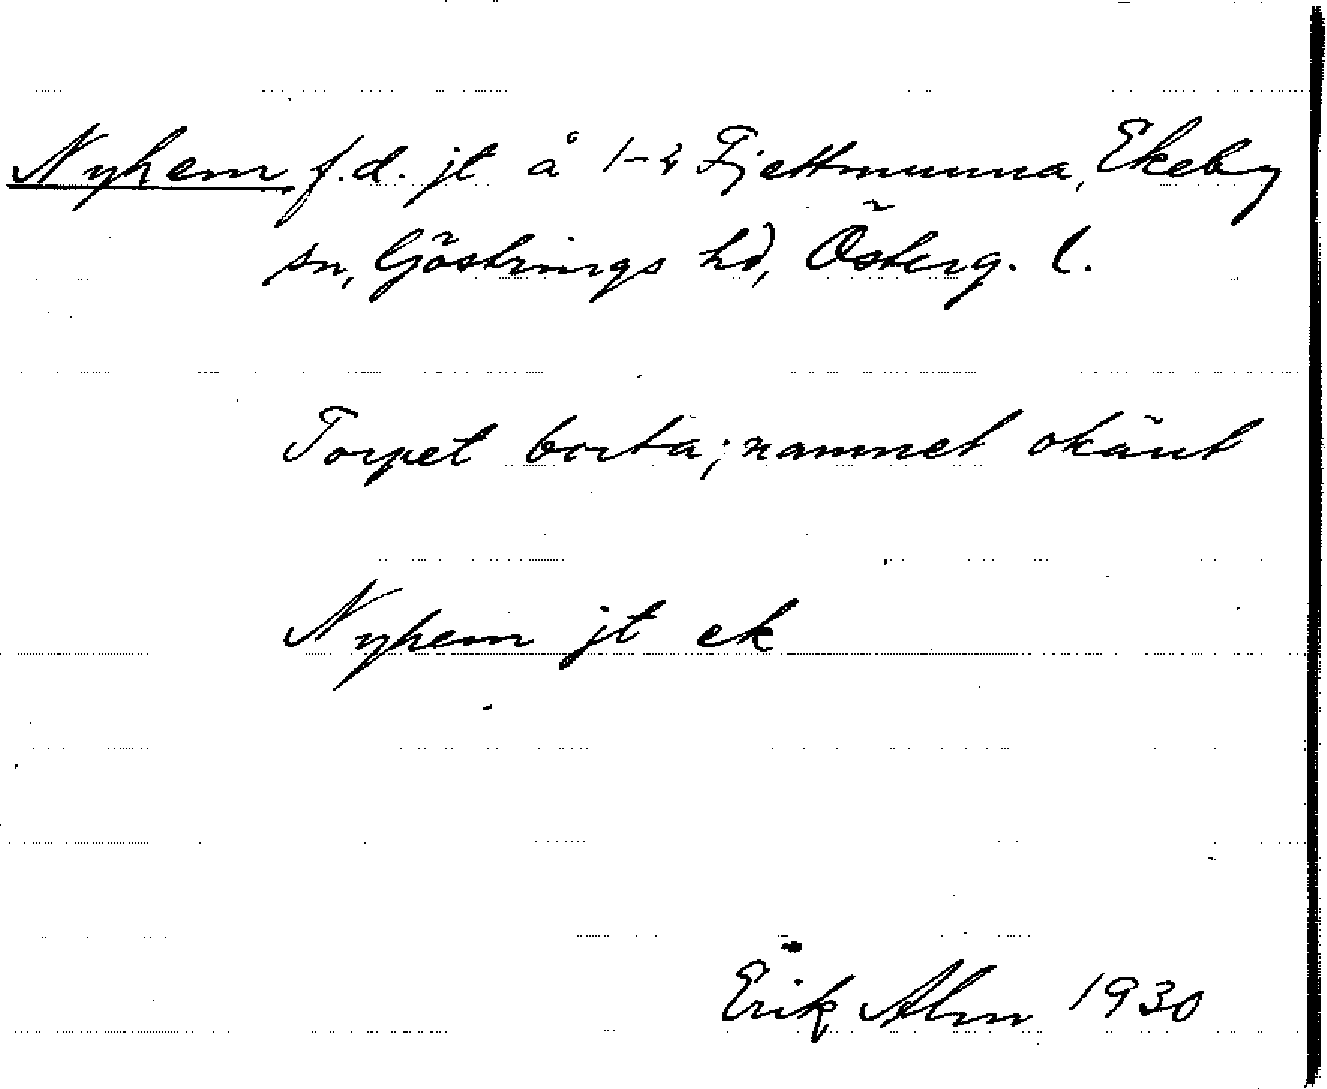 Nyhem f.d. jt å 1-4 Fjettmunna, Ekeby
sn, Göstrings hd, Österg. l.
Torpet borta; namnet okänt
Nyhem jt ek
Erik Alm 1930